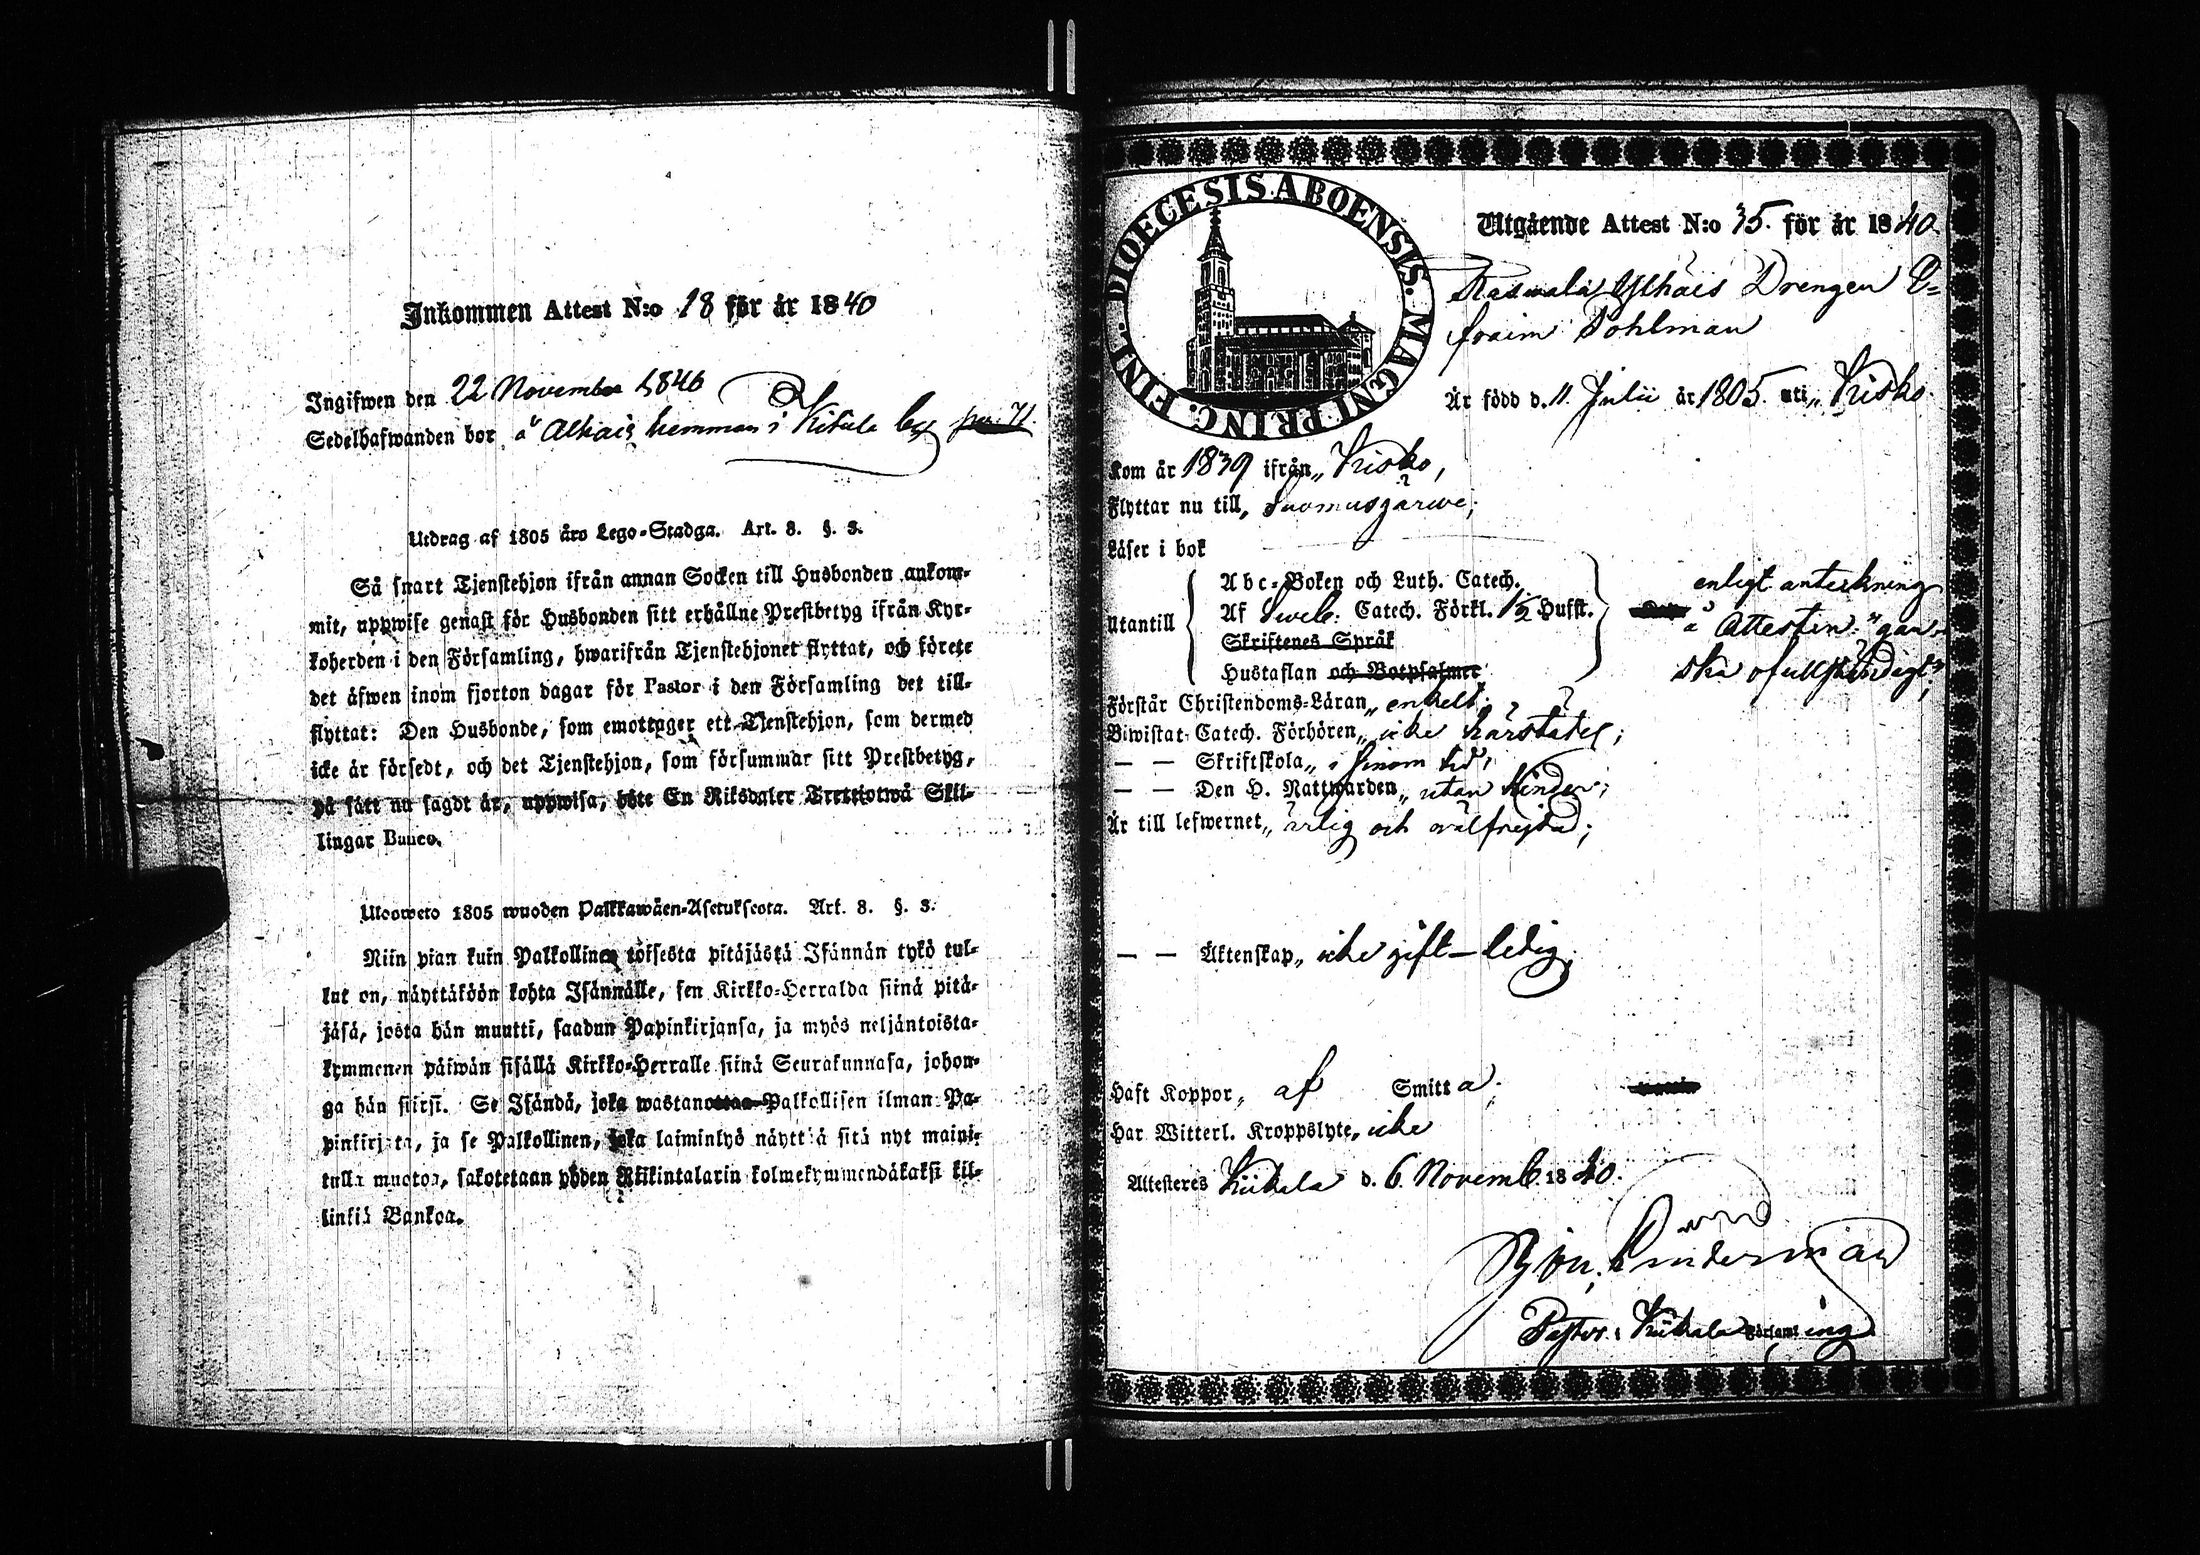 Inkommen Attest N:o 18 för år 1840
Ingifwen den 22 November 1840
Sedelhafwanden bor å Alhais hemman i Kitula by
Utdrag af 1805 års Lego-Stadga. Art. 8. §. 3.
Så snart Tjenstehjon ifrån annan Socken till Husbonden ankom-
mit, uppwise genast för Husbonden sitt erhållne Prestbetyg ifrån Kyr-
koherden i den Församling, hwarifrån Tjenstehjonet flyttat, och förete
det äfwen inom fjorton dagar för Pastor i den Församling det till-
flyttat: Den Husbonde, som emottager ett Tjenstehjon, som dermed
icke är försedt, och det Tjenstehjon, som försummar sitt Prestbetyg,
på sätt nu sagdt är, uppwisa, böte En Riksdaler Trettiotwå Skil-
lingar Banco.
Uloosweto 1805 wuoden Palkkawäen-Asetuksesta. Art. 8. §. 3.
Niin pian kuin Palkollinen toisesta pitäjästä Isännän tykö tul-
lut on, näyttäköön kohta Isännälle, sen Kirkko-Herralda siinä pitä-
jäsä, josta hän muutti, saadun Papinkirjansa, ja myös neljäntoista-
kymmenen päiwän sisällä Kirkko-Herralle siinä Seurakunnasa, johon-
ga hän siirsi. Se Isändä, joka wastanottaa Palkollisen ilman Pa-
pinkirjata, ja se Palkollinen, joka laiminlyö näyttää sitä nyt maini-
tulla muotoa, sakotetaan yhden Riikintalarin kolmekymmendäkaksi kil-
linkiä Bankoa.
DIOECESIS ABOENSIS. MAGNI PRINC. FINL.
Utgående Attest N:o 35. för år 1840.
Drengen E-
fraim Pohlman
Är född d. 11 Julii år 1805. uti, Kisko.
Kom år 1839 ifrån, Kisko,
Flyttar nu till, Suomusjärwi;
Läser i bok
Utantill
Abc-Boken och Luth. Catech.
Af Sweb. Catech. Förkl. 1/2 Husst.
Skriftenes Språk
Hustaflan och Botpsalmer
enligt anteckning
å Attesten: "gan-
ska ofullständigt";
Förstår Christendoms-Läran, enkelt;
Biwistat Catech. Förhören, icke härstädes;
— — Skriftskola, i sinom tid;
— — Den H. Nattwarden, utan hinder;
Är till lefwernet, ärlig och wälfrejdad;
— — Äktenskap, icke gift – ledig;
Haft Koppor, af Smitta;
Har Witterl. Kroppslyte, icke
Attesteres Kiikala d. 6. Novemb. 1840.
Pastor i Kiikala Församling.